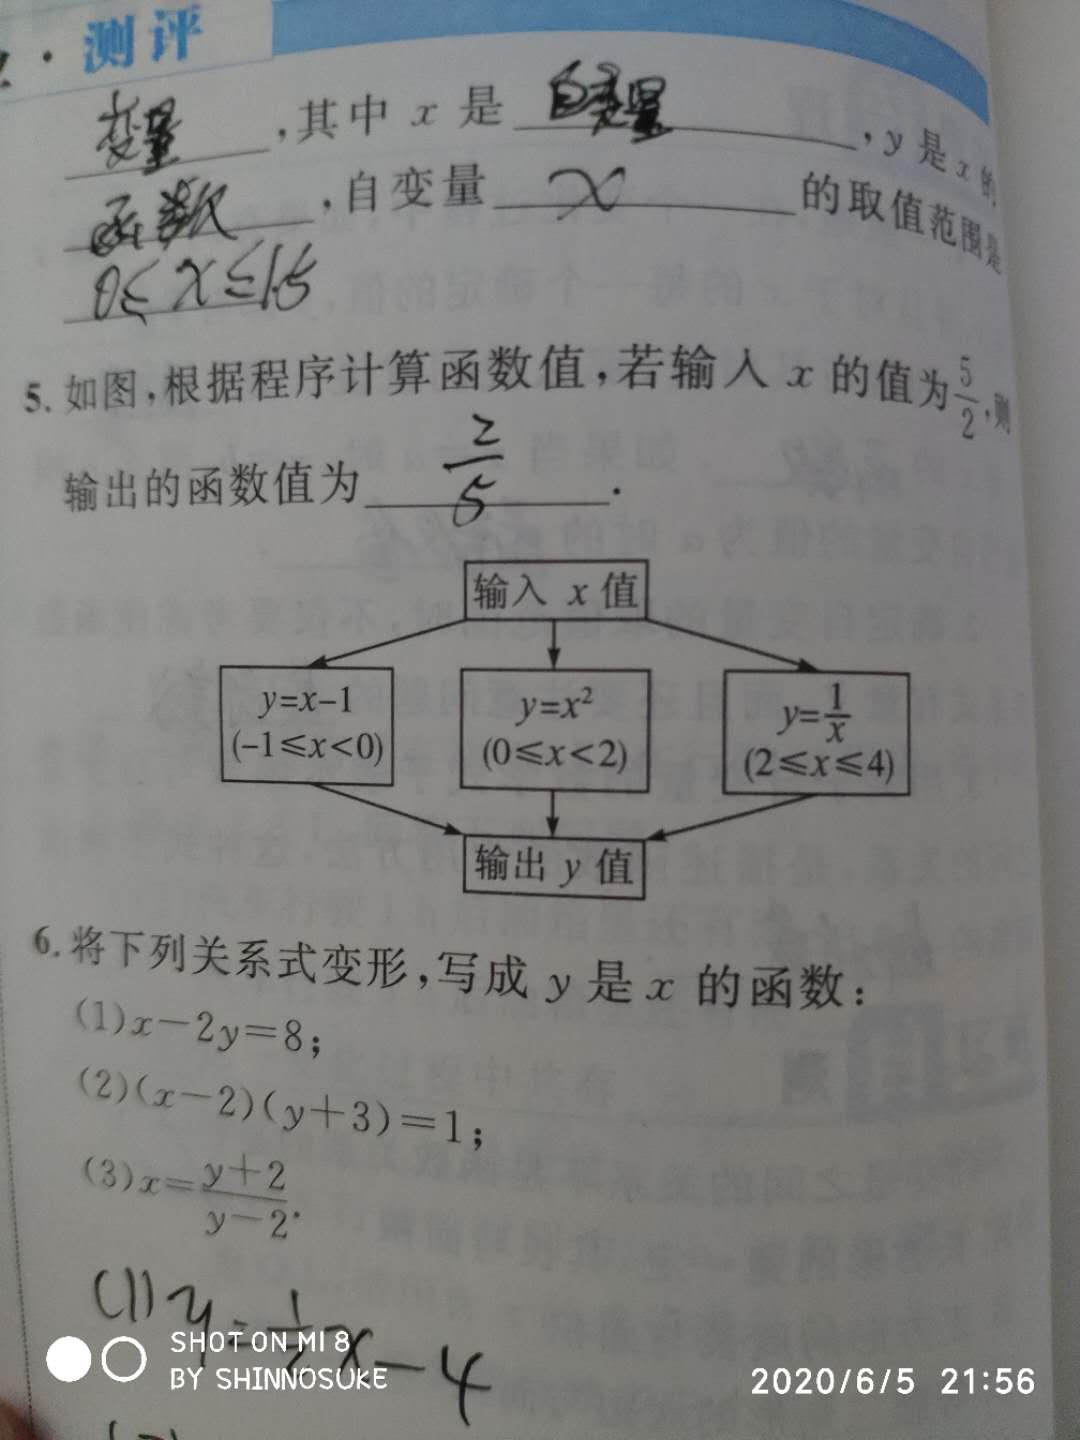 ·测评
变量,其中 x 是 自变量,y 是 x 的
函数,自变量 x 的取值范围是
0≤x≤15
5. 如图,根据程序计算函数值,若输入 x 的值为5/2,则
输出的函数值为 2/5.
输入 x 值
y=x-1
(-1≤x<0)
y=x²
(0≤x<2)
y=1/x
(2≤x≤4)
输出 y 值
6. 将下列关系式变形,写成 y 是 x 的函数:
(1)x-2y=8;
(2)(x-2)(y+3)=1;
(3)x=(y+2)/(y-2).
(1) y=1/2x-4
SHOT ON MI 8
BY SHINNOSUKE
2020/6/5 21:56